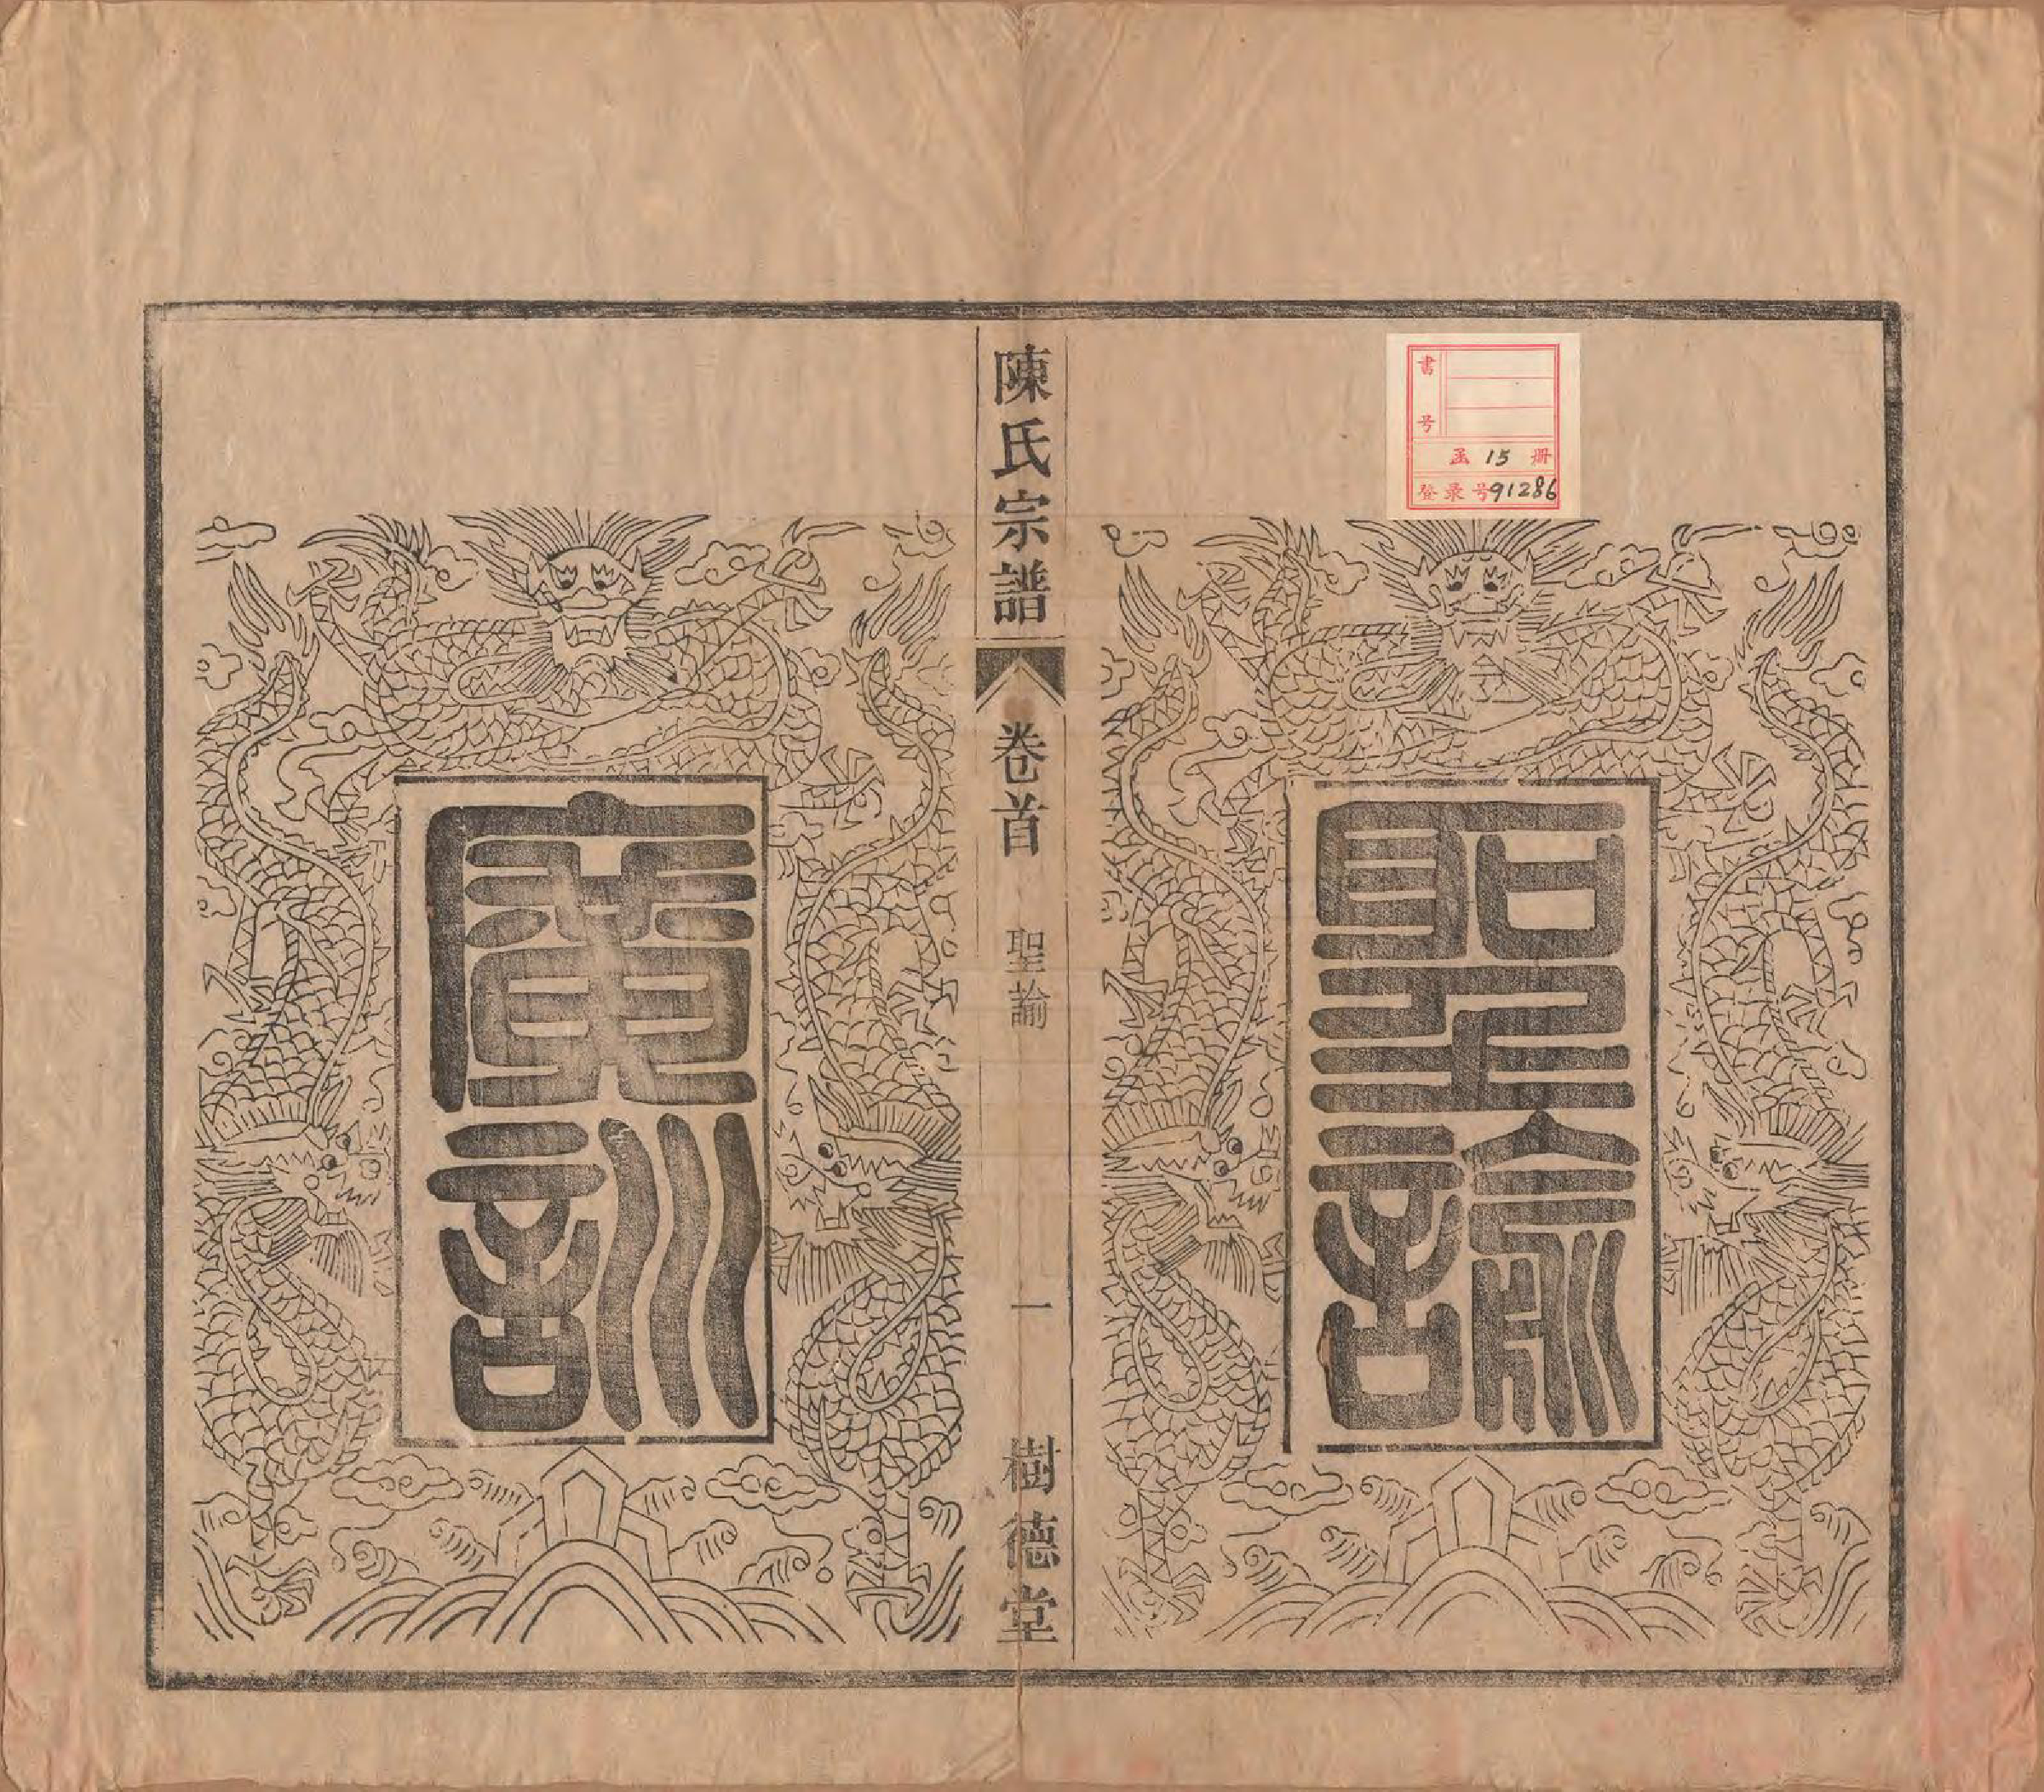 聖諭
廣訓
陳氏宗譜
卷首
聖諭
一
樹德堂
书号
函 15 册
登录号 91286